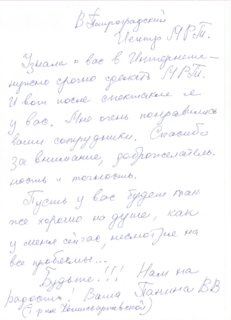 В Петроградский
Центр МРТ.
Узнала о вас в Интернете -
нужно срочно сделать МРТ.
И вот после спектакля я
у вас. Мне очень понравились
ваши сотрудники. Спасибо
за внимание, доброжелатель-
ность и точность.
Пусть у вас будет так
же хорошо на душе, как
у меня сейчас, несмотря на
все проблемы...
Будьте!!! Нам на
радость! Ваша Панина В.В